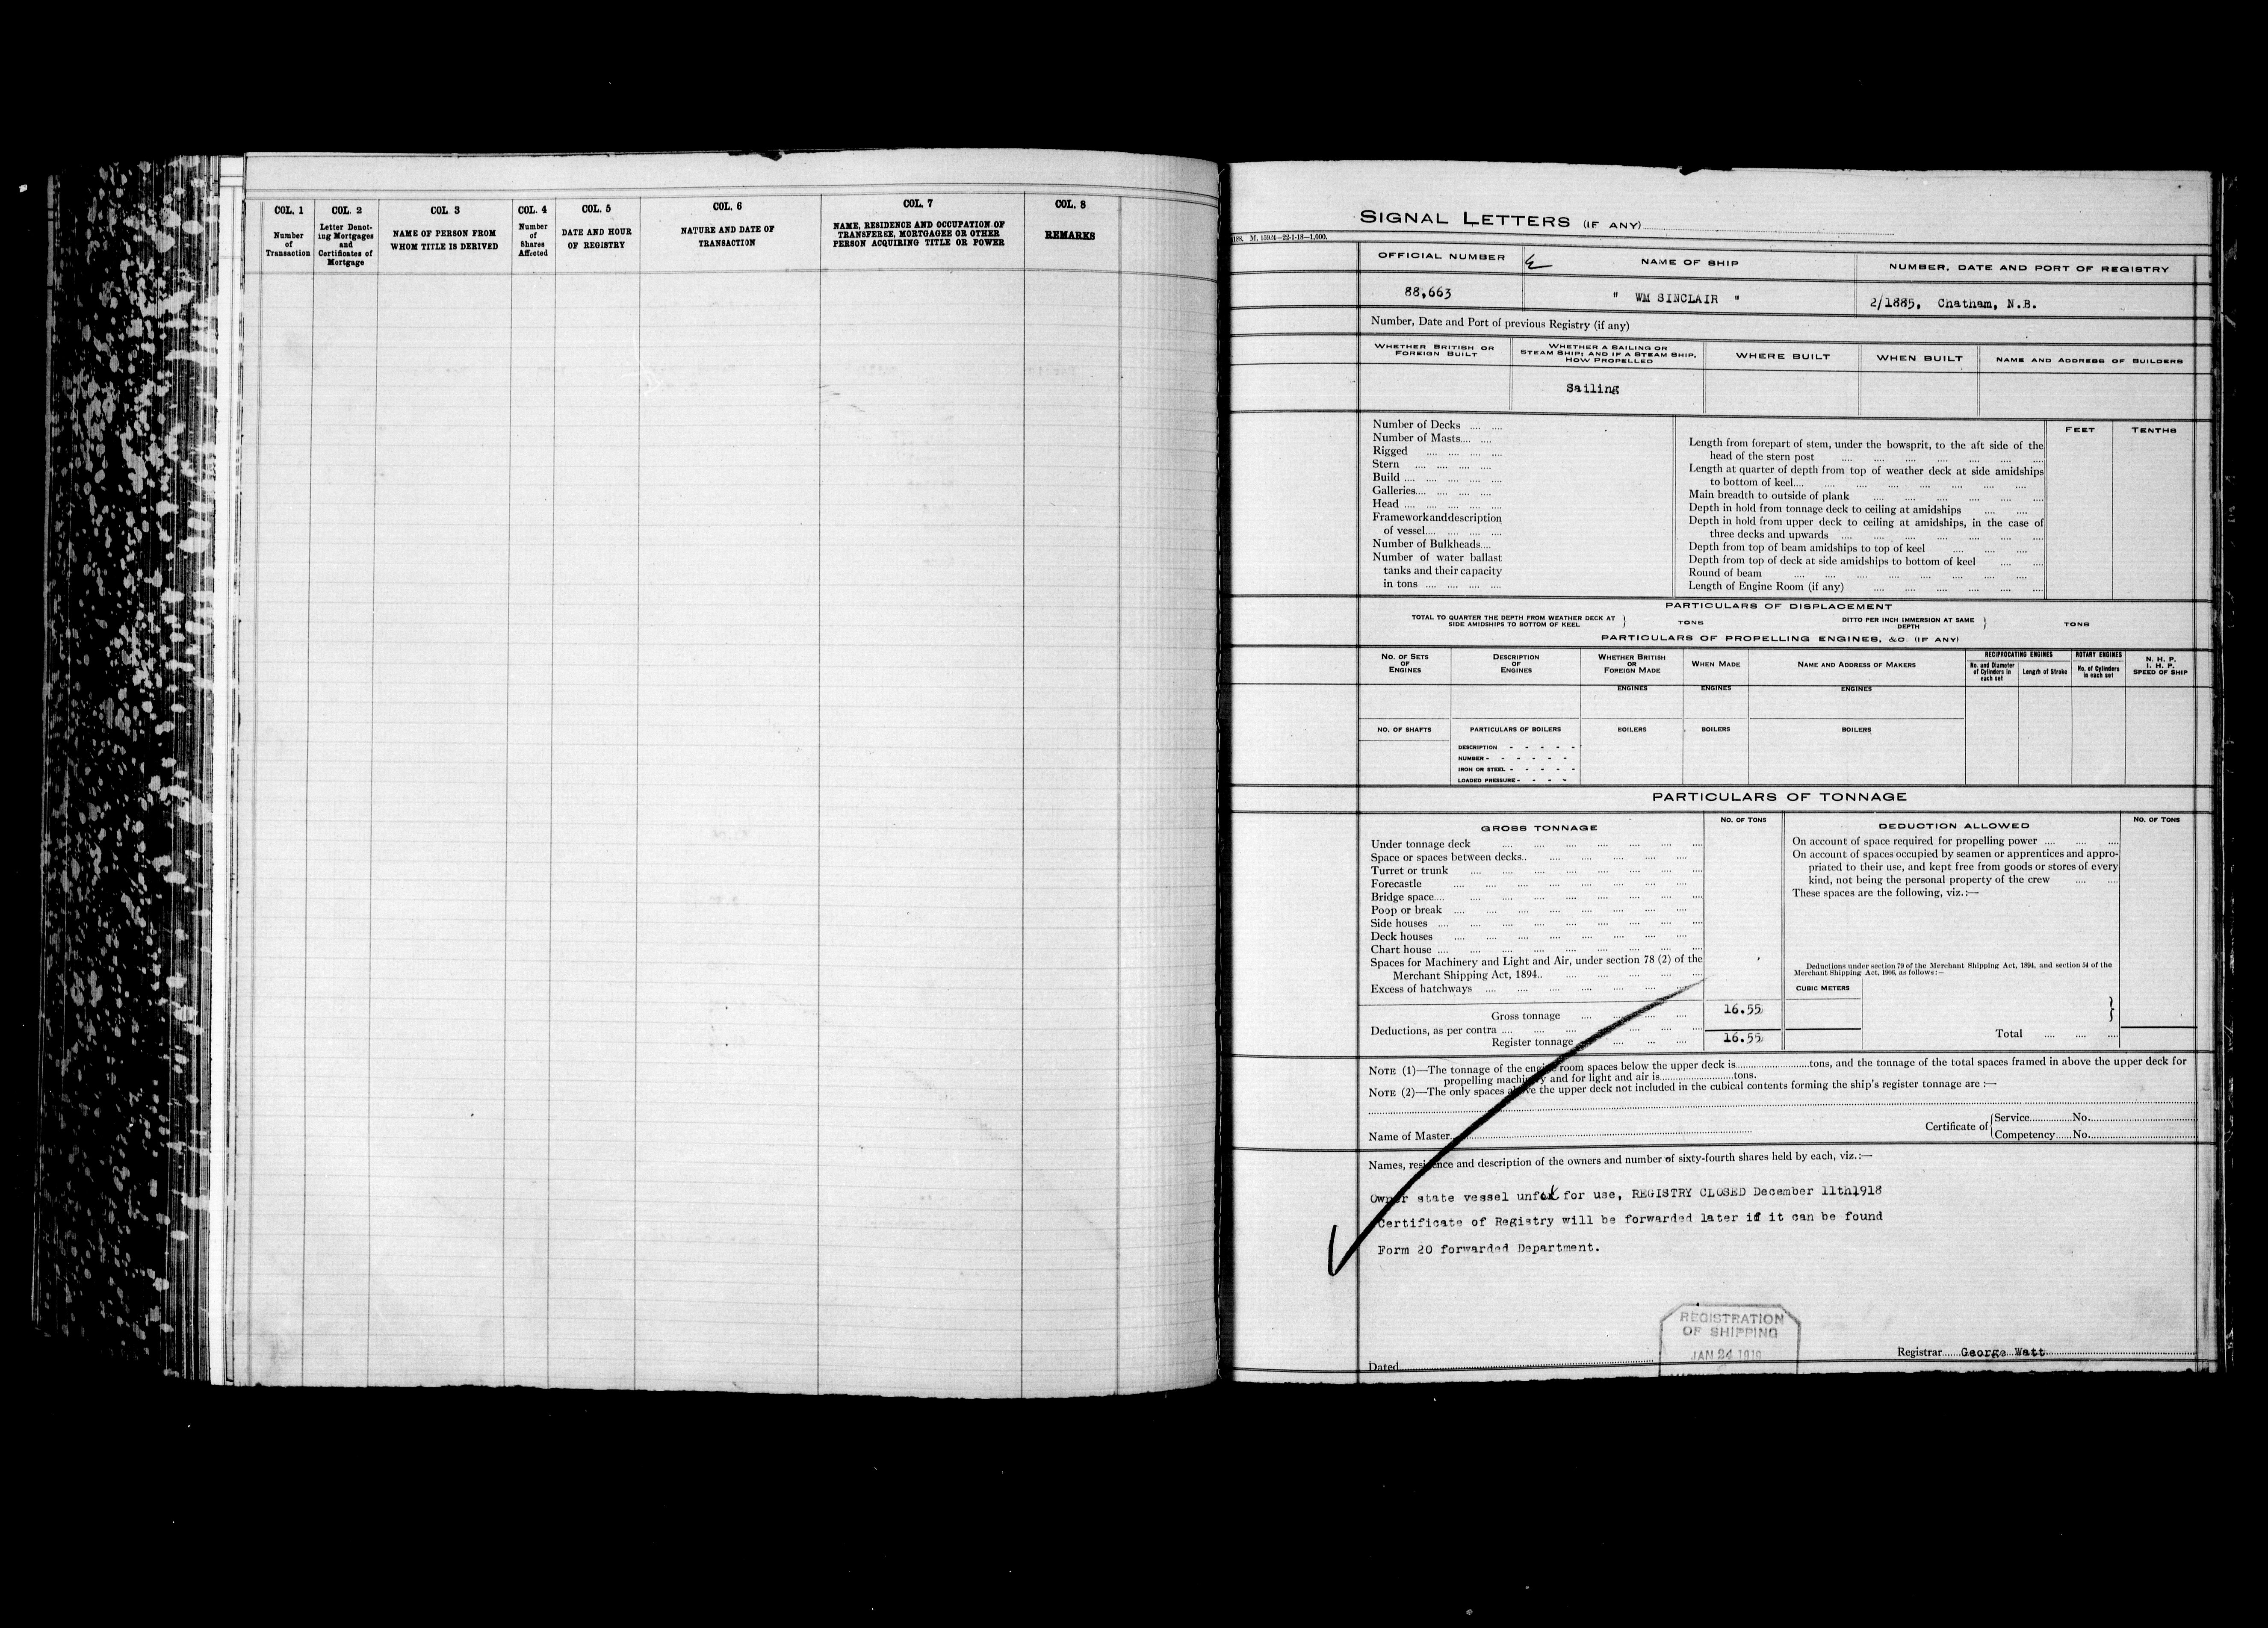 COL. 1
Number
of
Transaction
COL. 2
Letter Denot-
ing Mortgages
and
Certificates of
Mortgage
COL. 3
NAME OF PERSON FROM
WHOM TITLE IS DERIVED
COL. 4
Number
of
Shares
Affected
COL. 5
DATE AND HOUR
OF REGISTRY
COL. 6
NATURE AND DATE OF
TRANSACTION
COL. 7
NAME, RESIDENCE AND OCCUPATION OF
TRANSFEREE, MORTGAGEE OR OTHER
PERSON ACQUIRING TITLE OR POWER
COL. 8
REMARKS
SIGNAL LETTERS (IF ANY)
188. M. 15924—22-1-18—1,000.
OFFICIAL NUMBER
NAME OF SHIP
NUMBER, DATE AND PORT OF REGISTRY
88,663
" WM SINCLAIR "
2/1885, Chatham, N.B.
Number, Date and Port of previous Registry (if any)
WHETHER BRITISH OR
FOREIGN BUILT
WHETHER A SAILING OR
STEAM SHIP; AND IF A STEAM SHIP,
HOW PROPELLED
WHERE BUILT
WHEN BUILT
NAME AND ADDRESS OF BUILDERS
Sailing
Number of Decks
Number of Masts
Rigged
Stern
Build
Galleries
Head
Framework and description
of vessel
Number of Bulkheads
Number of water ballast
tanks and their capacity
in tons
FEET
TENTHS
Length from forepart of stem, under the bowsprit, to the aft side of the
head of the stern post
Length at quarter of depth from top of weather deck at side amidships
to bottom of keel
Main breadth to outside of plank
Depth in hold from tonnage deck to ceiling at amidships
Depth in hold from upper deck to ceiling at amidships, in the case of
three decks and upwards
Depth from top of beam amidships to top of keel
Depth from top of deck at side amidships to bottom of keel
Round of beam
Length of Engine Room (if any)
PARTICULARS OF DISPLACEMENT
TOTAL TO QUARTER THE DEPTH FROM WEATHER DECK AT
SIDE AMIDSHIPS TO BOTTOM OF KEEL
TONS
DITTO PER INCH IMMERSION AT SAME
DEPTH
TONS
PARTICULARS OF PROPELLING ENGINES, &C. (IF ANY)
NO. OF SETS
OF
ENGINES
DESCRIPTION
OF
ENGINES
WHETHER BRITISH
OR
FOREIGN MADE
WHEN MADE
NAME AND ADDRESS OF MAKERS
RECIPROCATING ENGINES
No. and Diameter
of Cylinders in
each set
Length of Stroke
ROTARY ENGINES
No. of Cylinders
in each set
N. H. P.
I. H. P.
SPEED OF SHIP
ENGINES
ENGINES
ENGINES
NO. OF SHAFTS
PARTICULARS OF BOILERS
BOILERS
BOILERS
BOILERS
DESCRIPTION - - - - -
NUMBER - - - - - -
IRON OR STEEL - - - - -
LOADED PRESSURE - - - -
PARTICULARS OF TONNAGE
GROSS TONNAGE
NO. OF TONS
DEDUCTION ALLOWED
NO. OF TONS
Under tonnage deck
Space or spaces between decks
Turret or trunk
Forecastle
Bridge space
Poop or break
Side houses
Deck houses
Chart house
Spaces for Machinery and Light and Air, under section 78 (2) of the
Merchant Shipping Act, 1894
Excess of hatchways
Gross tonnage 16.55
Deductions, as per contra
Register tonnage 16.55
On account of space required for propelling power
On account of spaces occupied by seamen or apprentices and appro-
priated to their use, and kept free from goods or stores of every
kind, not being the personal property of the crew
These spaces are the following, viz.:—
Deductions under section 79 of the Merchant Shipping Act, 1894, and section 54 of the
Merchant Shipping Act, 1906, as follows:—
CUBIC METERS
Total
NOTE (1)—The tonnage of the engine room spaces below the upper deck is tons, and the tonnage of the total spaces framed in above the upper deck for
propelling machinery and for light and air is tons.
NOTE (2)—The only spaces above the upper deck not included in the cubical contents forming the ship's register tonnage are :—
Name of Master
Certificate of
Service No.
Competency No.
Names, residence and description of the owners and number of sixty-fourth shares held by each, viz.:—
Owner state vessel for use, REGISTRY CLOSED December 11th1918
Certificate of Registry will be forwarded later if it can be found
Form 20 forwarded Department.
REGISTRATION
OF SHIPPING
JAN 24 1919
Dated
Registrar George Watt